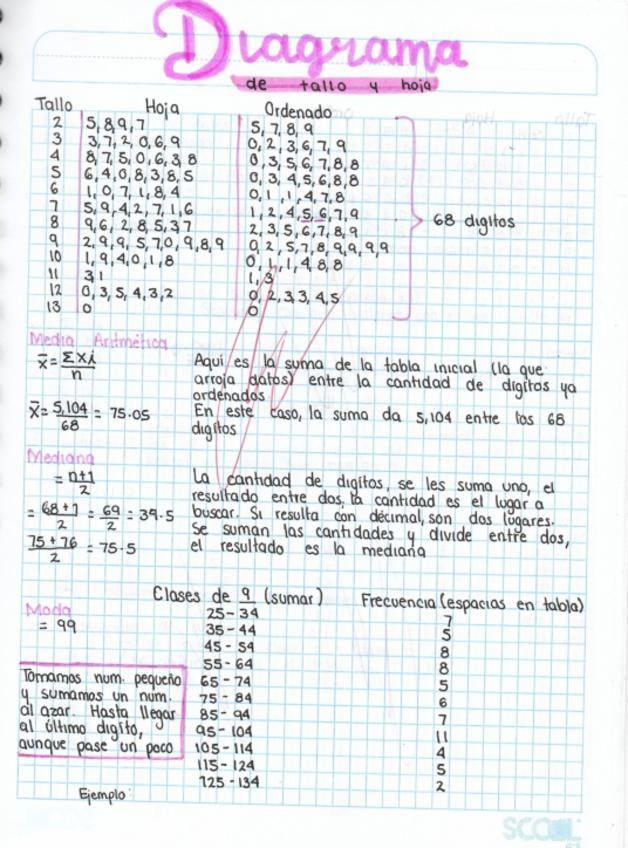 Diagrama
de tallo y hoja
Tallo Hoja Ordenado
2 5,8,9,7 5,7,8,9
3 3,7,2,0,6,9 0,2,3,6,7,9
4 8,7,5,0,6,3,8 0,3,5,6,7,8,8
5 6,4,0,8,3,8,5 0,3,4,5,6,8,8
6 1,0,7,1,8,4 0,1,1,4,7,8
7 5,9,4,2,7,1,6 1,2,4,5,6,7,9
8 9,6,2,8,5,3,7 2,3,5,6,7,8,9
9 2,9,9,5,7,0,9,8,9 0,2,5,7,8,9,9,9,9
10 1,9,4,0,1,8 0,1,1,4,8,8
11 3,1 1,3
12 0,3,5,4,3,2 0,2,3,3,4,5
13 0 0
68 digitos
Media Aritmética
x̄ = Σxi/n
Aqui es la suma de la tabla inicial (la que
arroja datos) entre la cantidad de digitos ya
ordenados
x̄ = 5,104/68 = 75.05
En este caso, la suma da 5,104 entre los 68
digitos
Mediana
= n+1/2
= 68+1/2 = 69/2 = 39.5
75+76/2 = 75.5
La cantidad de digitos, se les suma uno, el
resultado entre dos, la cantidad es el lugar a
buscar. Si resulta con decimal, son dos lugares.
Se suman las cantidades y divide entre dos,
el resultado es la mediana
Moda
= 99
Tomamos num. pequeño
y sumamos un num.
al azar. Hasta llegar
al último digito,
aunque pase un poco
Ejemplo:
Clases de 9 (sumar) Frecuencia (espacias en tabla)
25-34 7
35-44 5
45-54 8
55-64 8
65-74 5
75-84 6
85-94 7
95-104 11
105-114 4
115-124 5
125-134 2